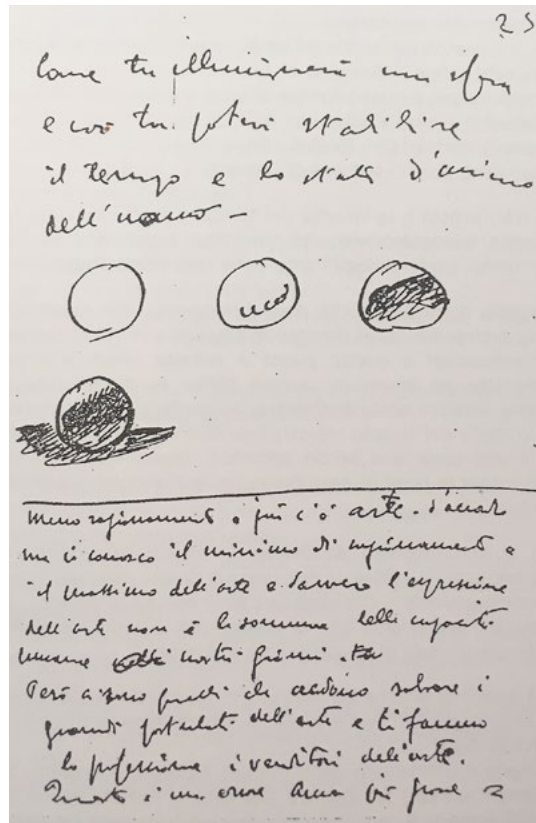 25
Come tu illuminerai una sfera
e così tu potrai stabilire
il tempo e lo stato d'animo
dell'uomo –
meno ragionamenti e più c'è arte. d'accordo
ma ci conosco il minimo di ragionamento e
il massimo dell'arte e davvero l'espressione
dell'arte non è la somma delle capacità
umane nostri giorni.
Però ci sono quelli che credono salvare i
grandi postulati dell'arte e ti fanno
la professione i venditori dell'arte.
Questo è un errore ancor più grave